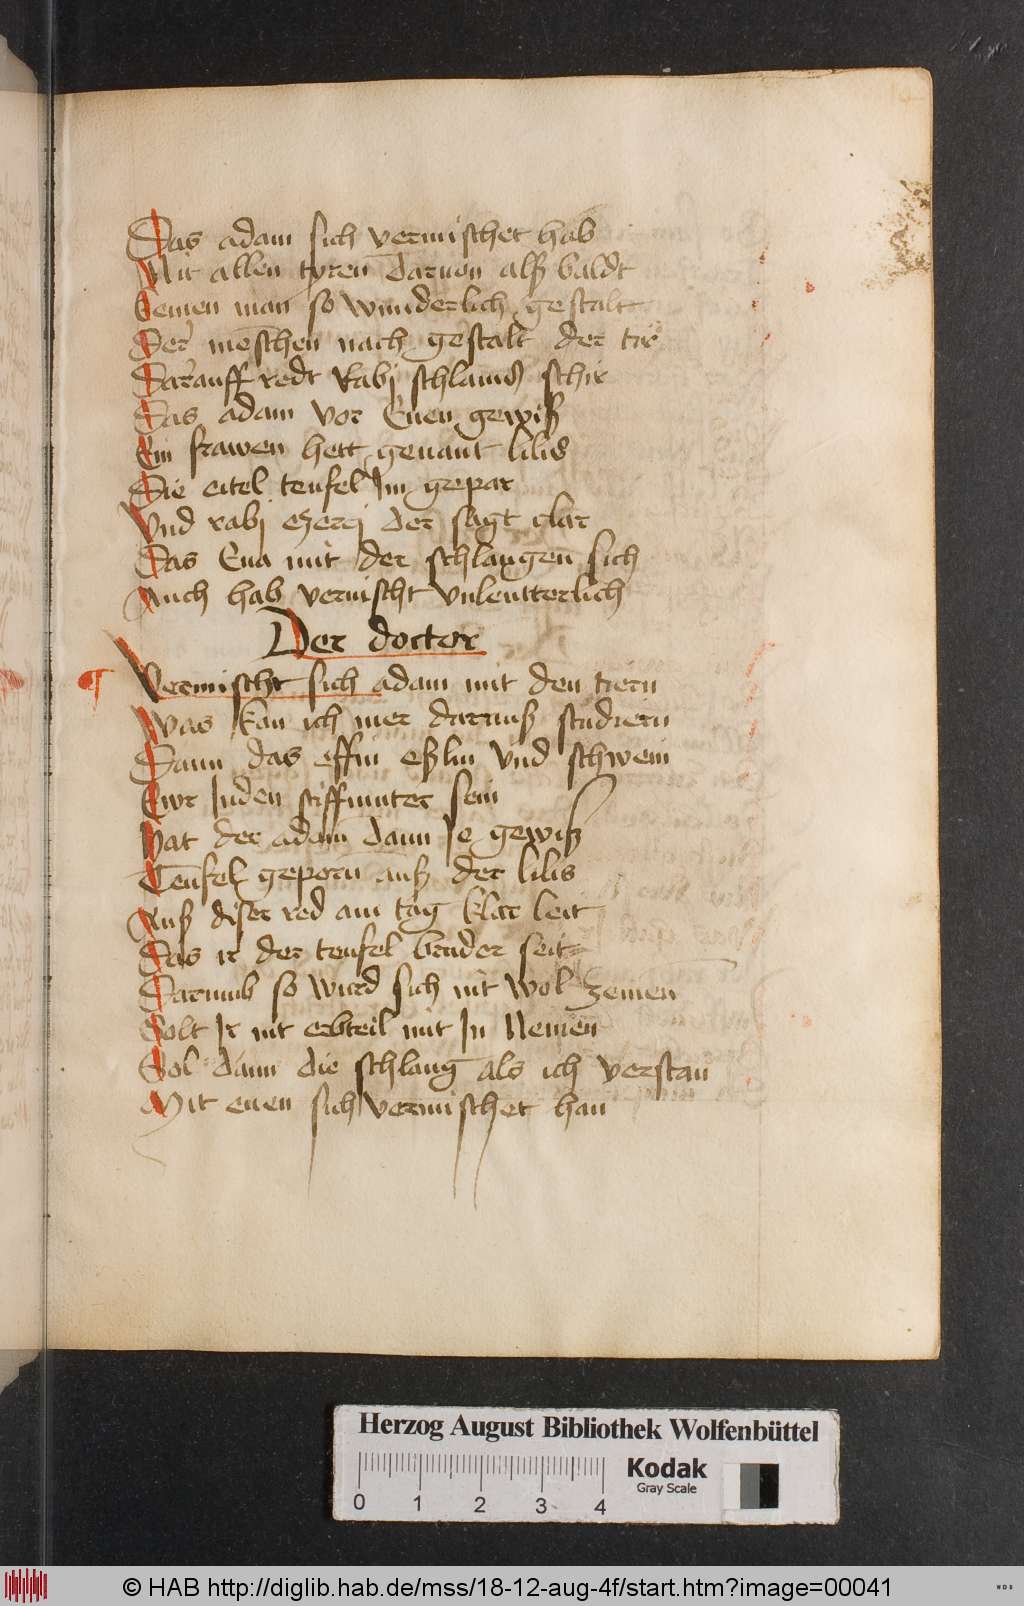 Das adam sich vermischet hab
Mit allen tyren daruon alß baldt
kemen man so wunderlich gestalt
Der menschen nach gestalt der tir
Darauff redt Rabi schlamß schir
Das adam vor Euen gewiß
Ein frawen hett genant lilis
Die eitel teufel Im gepar
Vnd rabj ezerj der sagt clar
Das Eua mit der schlangen sich
Auch hab vermischt vnleutterlich
Der doctor
Vermischt sich adam mit den tiern
Was kan ich mer darauß studiern
Dann das effin eßlin vnd schwein
Ewr Juden stiffmuter sein
Hat der adam dann Je gewiß
Teufel geporn auß der lilis
Auß diser red am tag klar leit
Das ir der teufel bruder seit
Darumb so wurd sich nit wol zemen
Solt Ir nit erbteil mit In Nemen
Sol dann die schlang als ich verstan
Mit euen sich vermischet han
Herzog August Bibliothek Wolfenbüttel
Kodak
Gray Scale
0 1 2 3 4
© HAB http://diglib.hab.de/mss/18-12-aug-4f/start.htm?image=00041